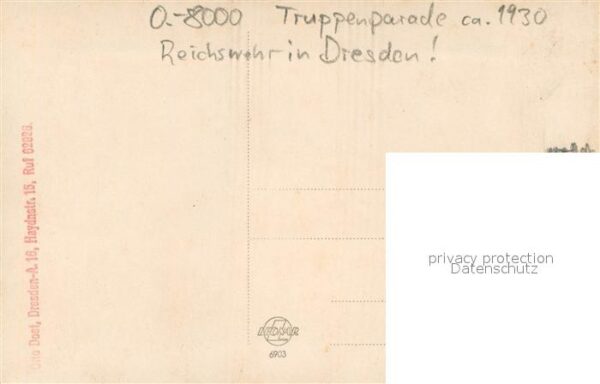 O.-8000 Truppenparade ca. 1930
Reichswehr in Dresden!
Otto Dost, Dresden-A. 16, Haydnstr. 15, Ruf 62826.
privacy protection
Datenschutz
LEONAR
6903